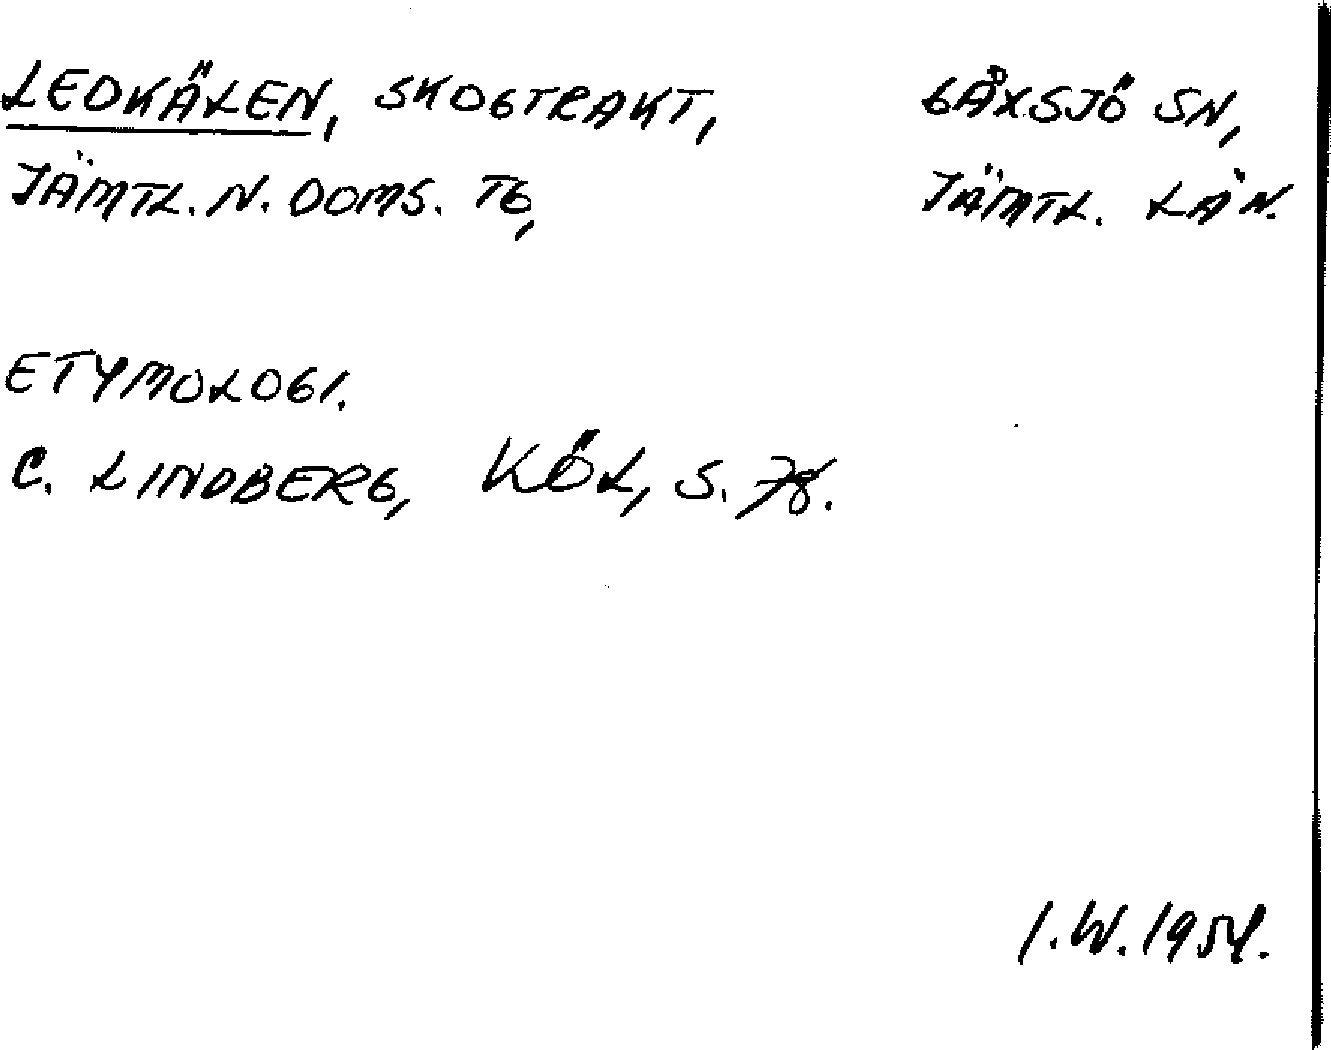 LEDKÄLEN, SKOGTRAKT, GÅXSJÖ SN,
JÄMTL. N. DOMS. TG, JÄMTL. LÄN.
ETYMOLOGI.
C. LINDBERG, KÖL, S. 78.
I.W. 1954.